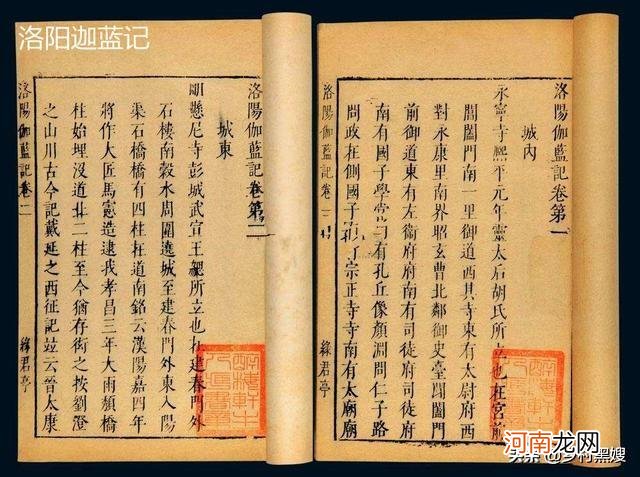 洛阳迦蓝记
洛陽伽藍記卷第一
城内
永寧寺熙平元年靈太后胡氏所立也在宮前
閶闔門南一里御道西其寺東有太尉府西
對永康里南界昭玄曹北鄰御史臺閶闔門
前御道東有左衛府府南有司徒府司徒府
南有國子學堂内有孔丘像顏淵問仁子路
問政在側國子宗正寺寺南有太廟廟
洛陽伽藍記卷一
綠君亭
洛陽伽藍記卷第二
城東
明懸尼寺彭城武宣王勰所立也在建春門外
石樓南穀水周圍遶城至建春門外東入陽
渠石橋橋有四柱在道南銘云漢陽嘉四年
將作大匠馬憲造逮我孝昌三年大雨頹橋
柱始埋沒道北二柱至今猶存衒之按劉澄
之山川古今記戴延之西征記竝云晉太康
洛陽伽藍記卷二
綠君亭
河南龙网
头条@乡村黑嫂